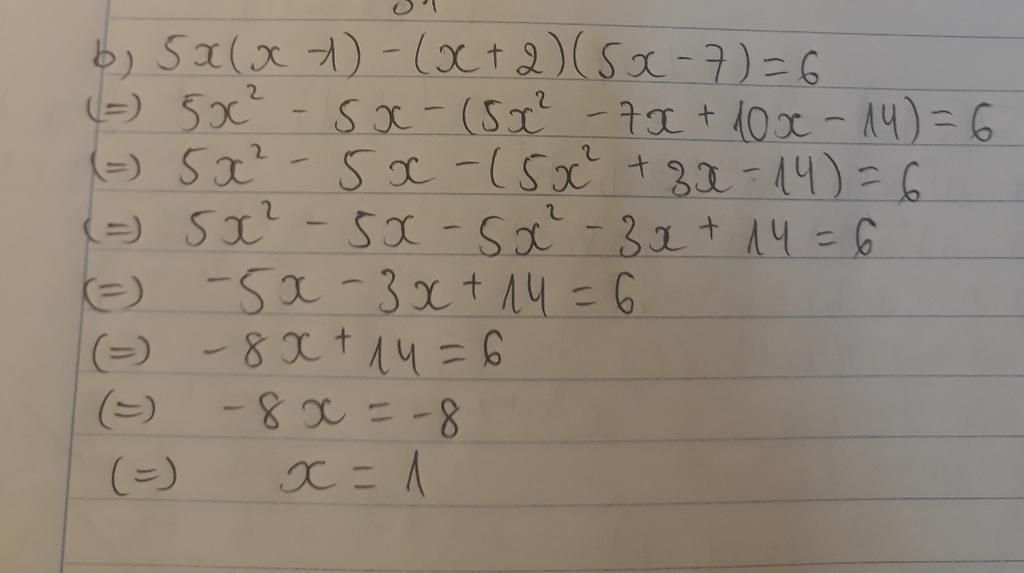 b) 5x(x-1) - (x+2)(5x-7) = 6
(=) 5x² - 5x - (5x² - 7x + 10x - 14) = 6
(=) 5x² - 5x - (5x² + 3x - 14) = 6
(=) 5x² - 5x - 5x² - 3x + 14 = 6
(=) -5x - 3x + 14 = 6
(=) -8x + 14 = 6
(=) -8x = -8
(=) x = 1